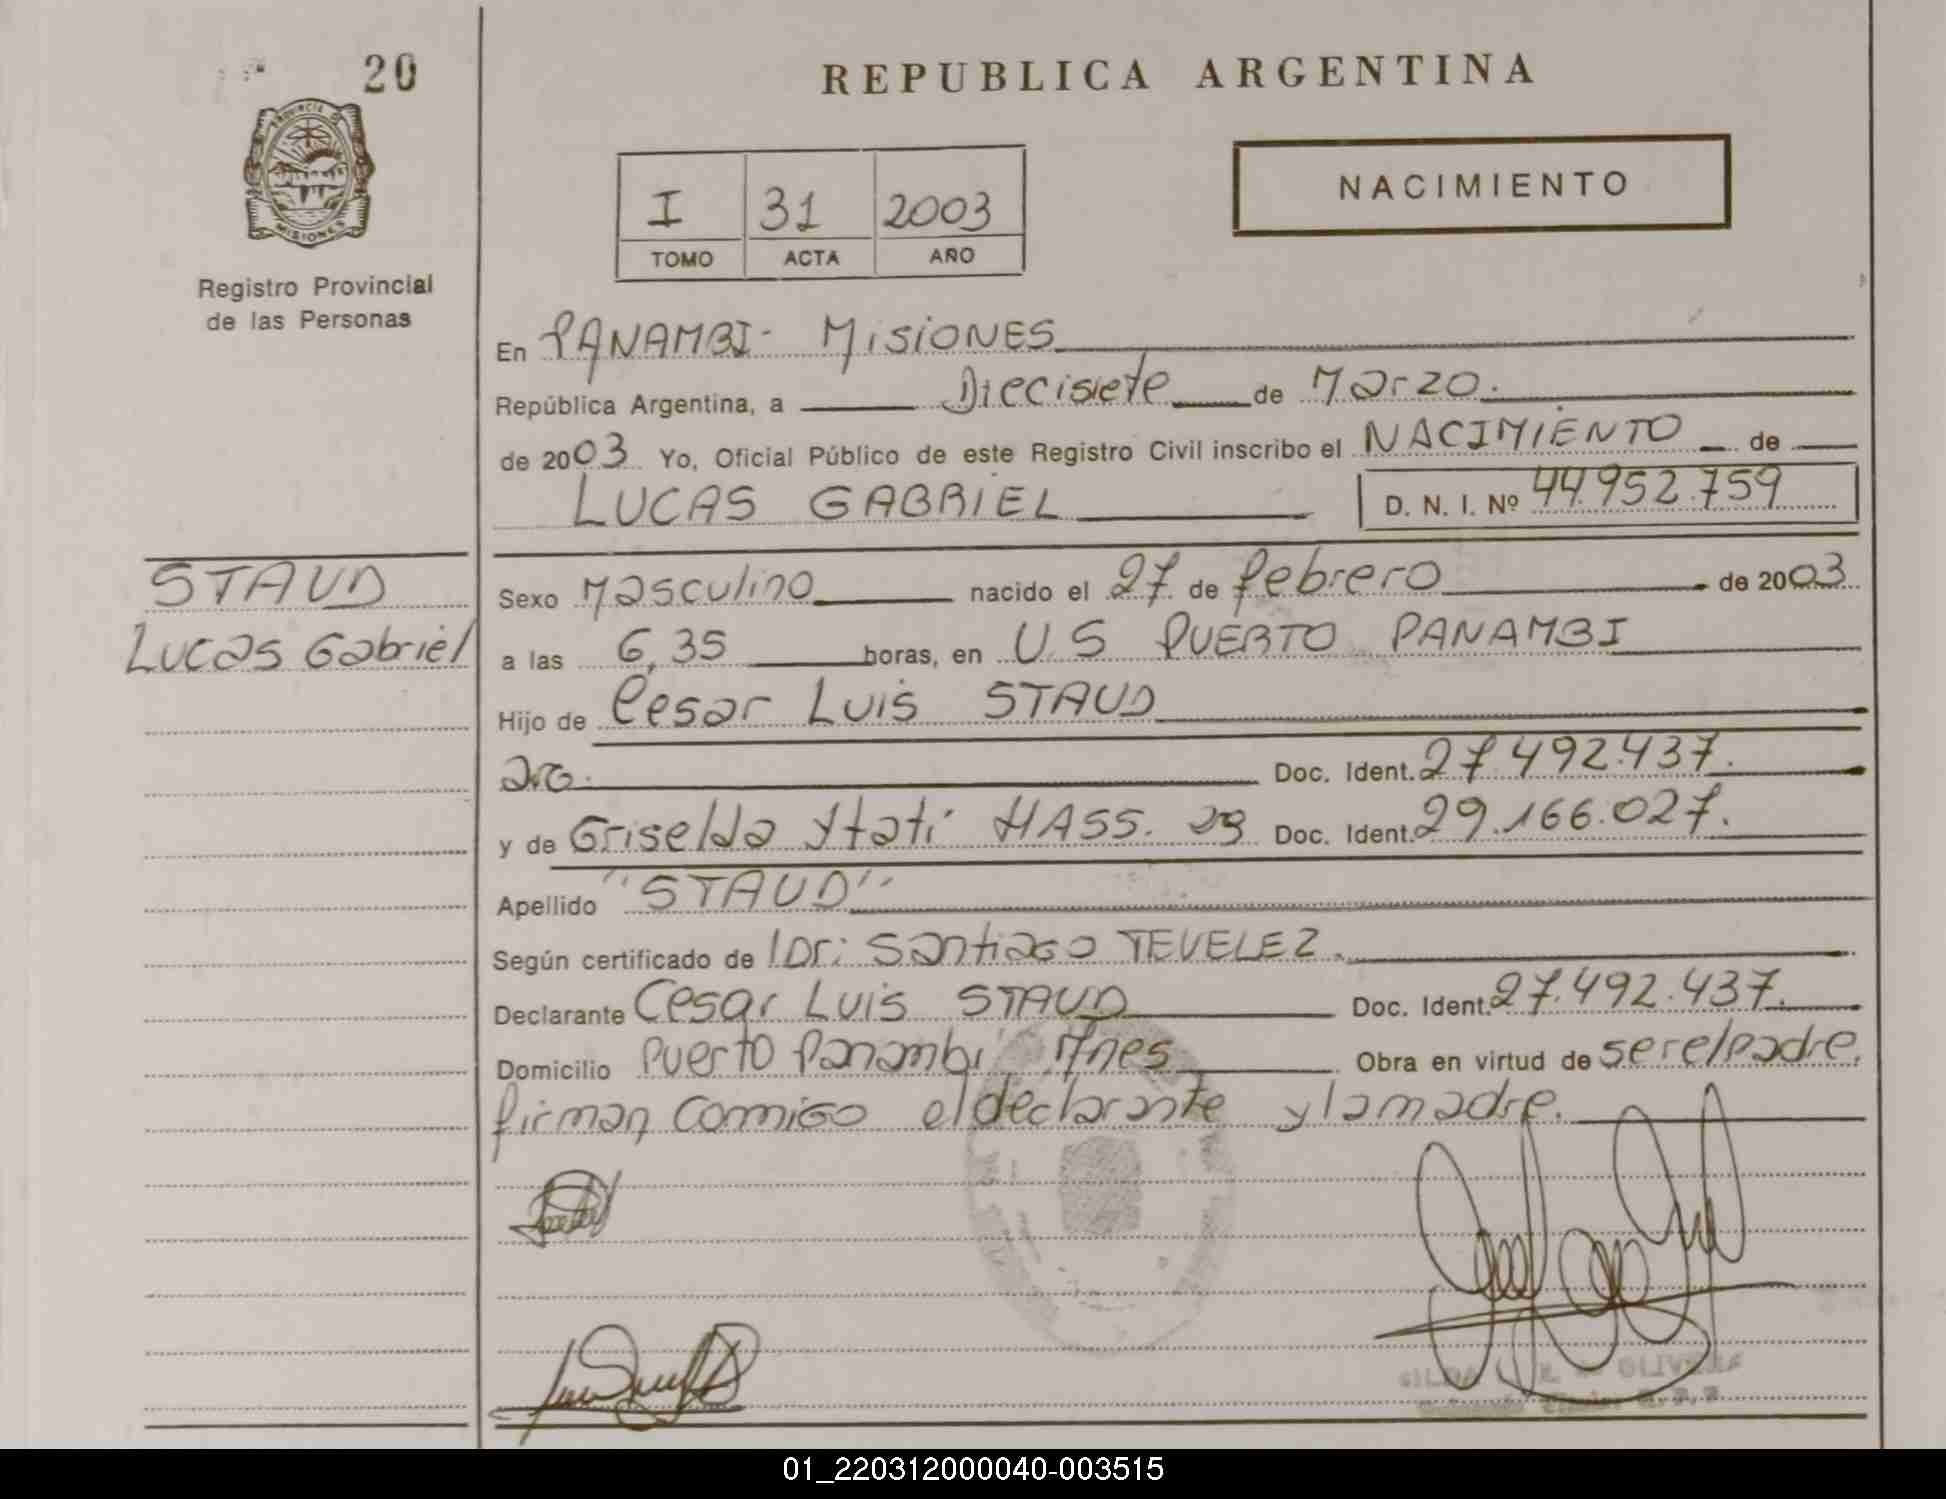 20
REPUBLICA ARGENTINA
PROVINCIA DE
MISIONES
Registro Provincial
de las Personas
I 31 2003
TOMO ACTA AÑO
NACIMIENTO
En PANAMBI - MisiONES
República Argentina, a Diecisiete de Marzo.
de 2003 Yo, Oficial Público de este Registro Civil inscribo el NACIMIENTO de
LUCAS GABRIEL D. N. I. Nº 44.952.759
STAUD
Lucas Gabriel
Sexo Masculino nacido el 27 de febrero de 2003
a las 6,35 horas, en U.S PUERTO PANAMBI
Hijo de Cesar Luis STAUD
arg. Doc. Ident. 27.492.437.
y de Griselda Ytatí HASS. Doc. Ident. 29.166.027.
Apellido "STAUD"
Según certificado de Dr: Santiago TEVELEZ.
Declarante Cesar Luis STAUD Doc. Ident. 27.492.437.
Domicilio Puerto Panambi Mnes Obra en virtud de ser el padre.
firman conmigo el declarante y la madre.
01_220312000040-003515